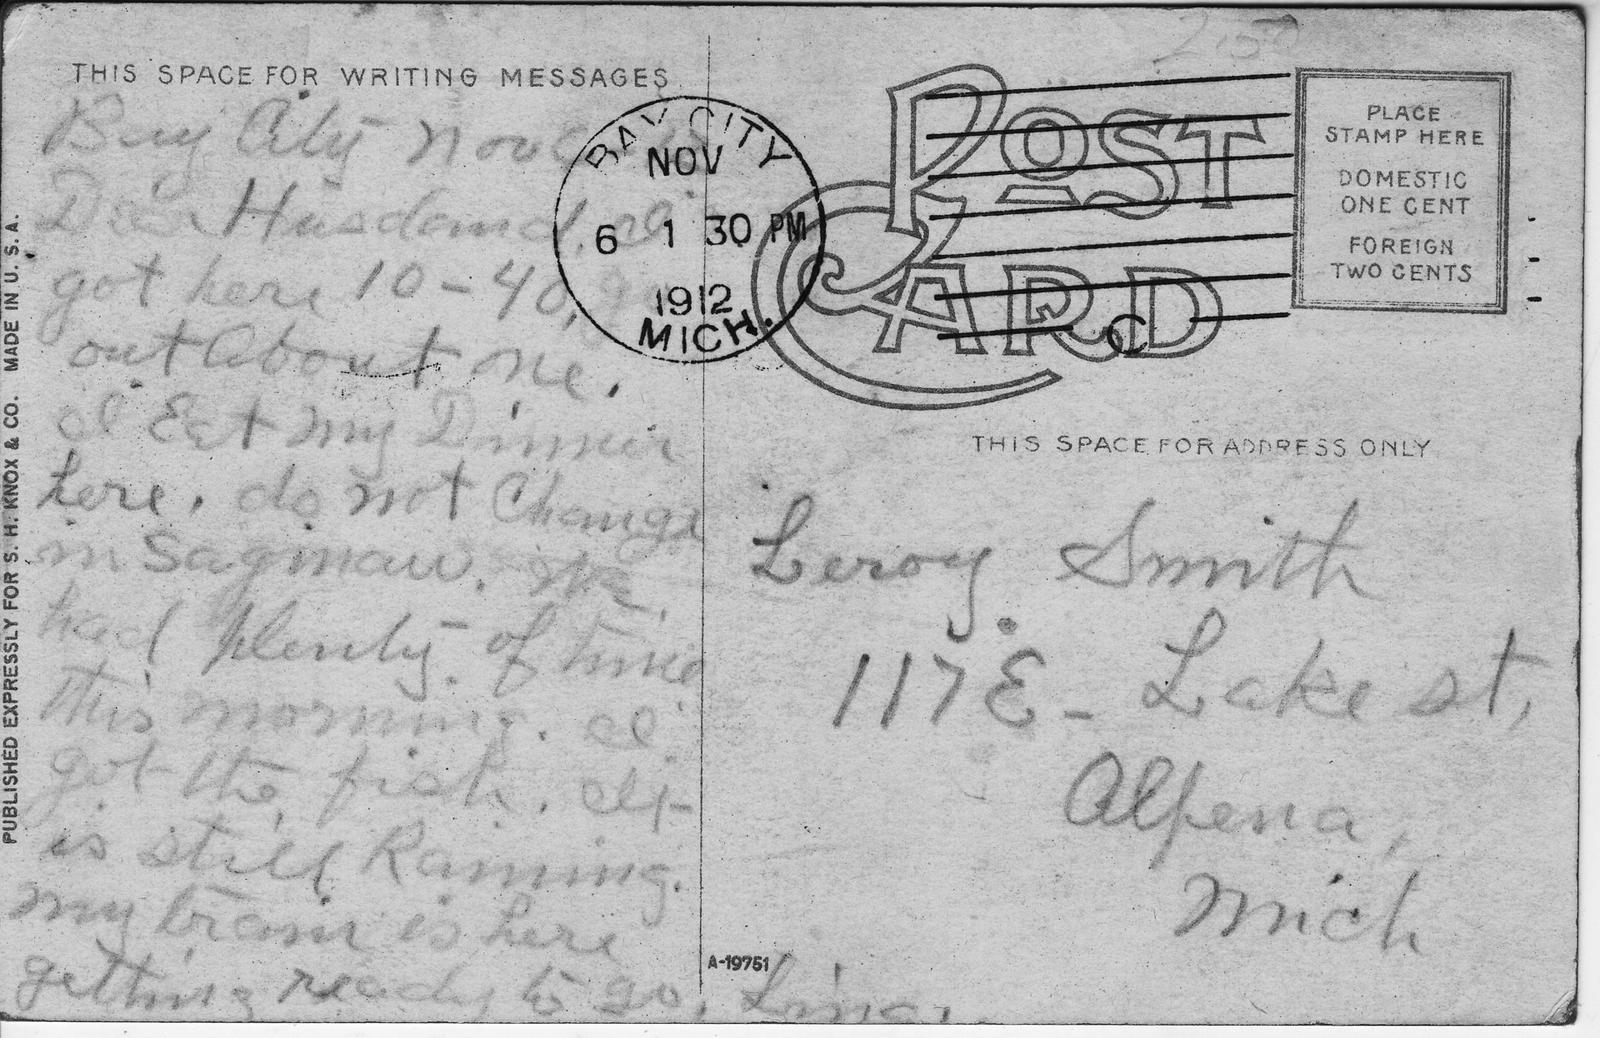 THIS SPACE FOR WRITING MESSAGES
Bay City Nov
Dear Husband, I
got here 10-40, go
out about one.
I Eat my Dinner
here, do not Change
in Saginaw. We
had plenty of time
this morning. I
got the fish. It
is still Raining.
my train is here
getting ready to go, Lina.
BAY CITY
NOV
6 1 30 PM
1912
MICH.
C
POST CARD
2.50
PLACE
STAMP HERE
DOMESTIC
ONE CENT
FOREIGN
TWO CENTS
THIS SPACE FOR ADDRESS ONLY
Leroy Smith
117 E- Lake st,
Alpena,
Mich
A-19751
PUBLISHED EXPRESSLY FOR S. H. KNOX & CO. MADE IN U. S. A.